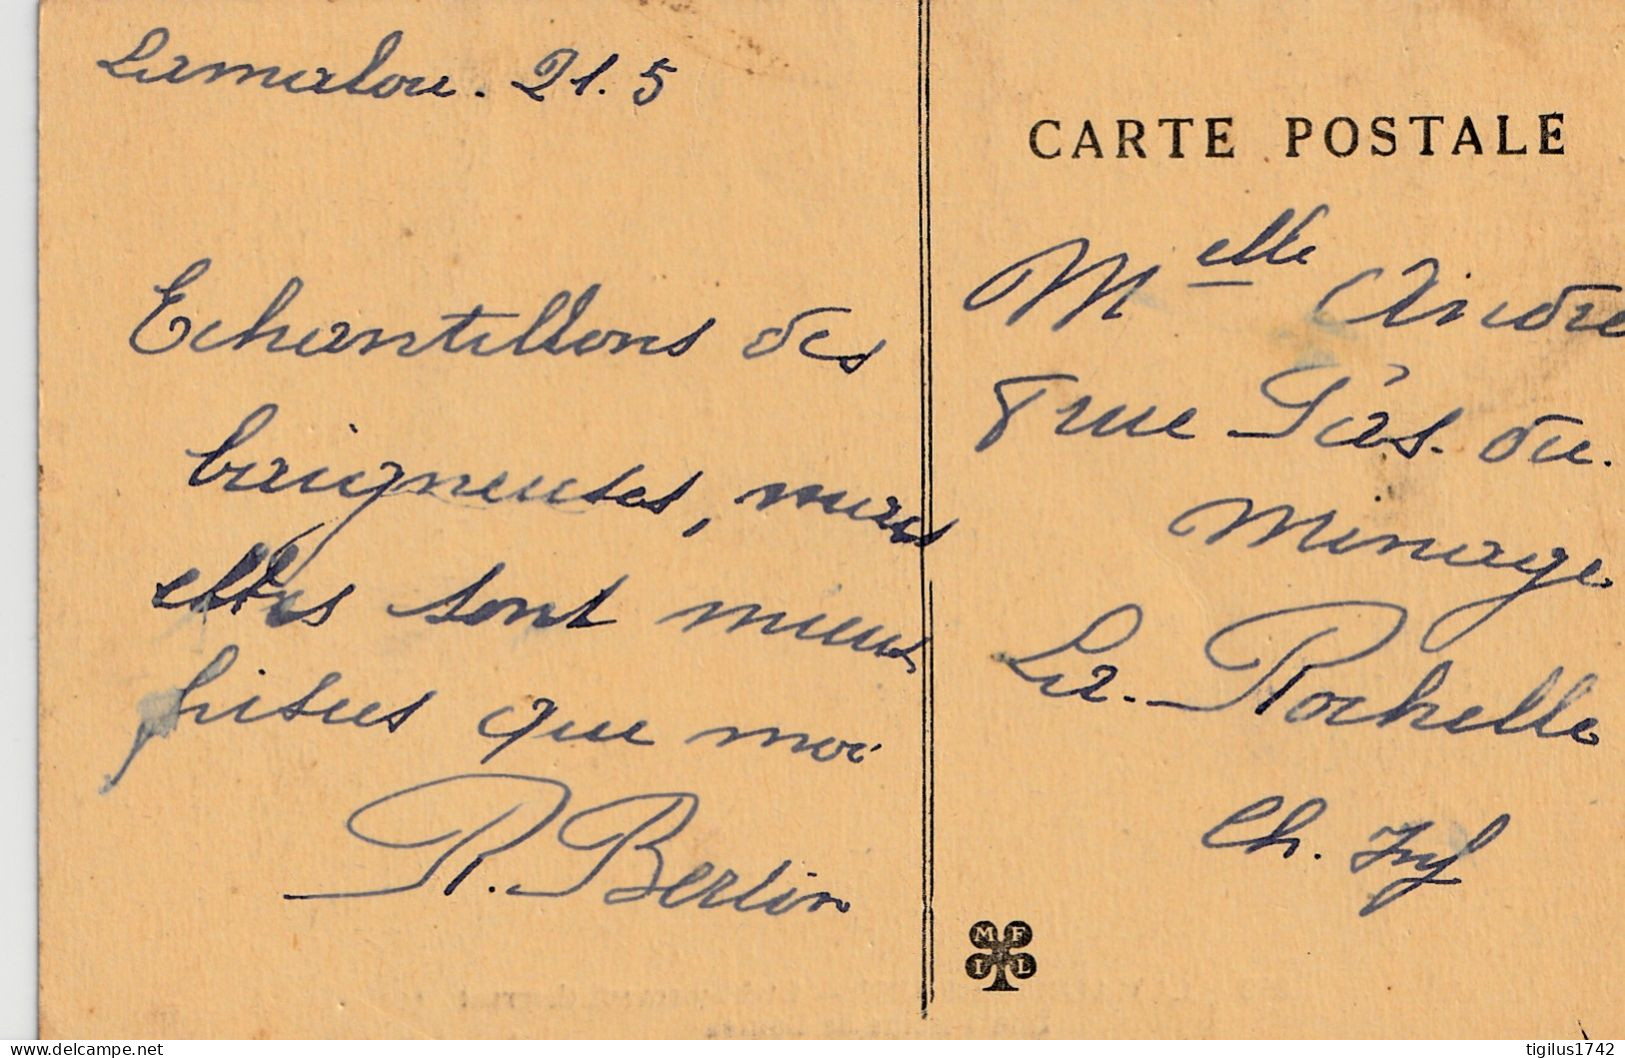 Lamalou. 21.5
Echantillons des
baigneuses, mais
elles sont mieux
fisues que moi
R. Berlin
CARTE POSTALE
Melle Andre
8 rue Pas. du.
Minage
La. Rochelle
Ch. Inf
M F
I L
tigilus1742